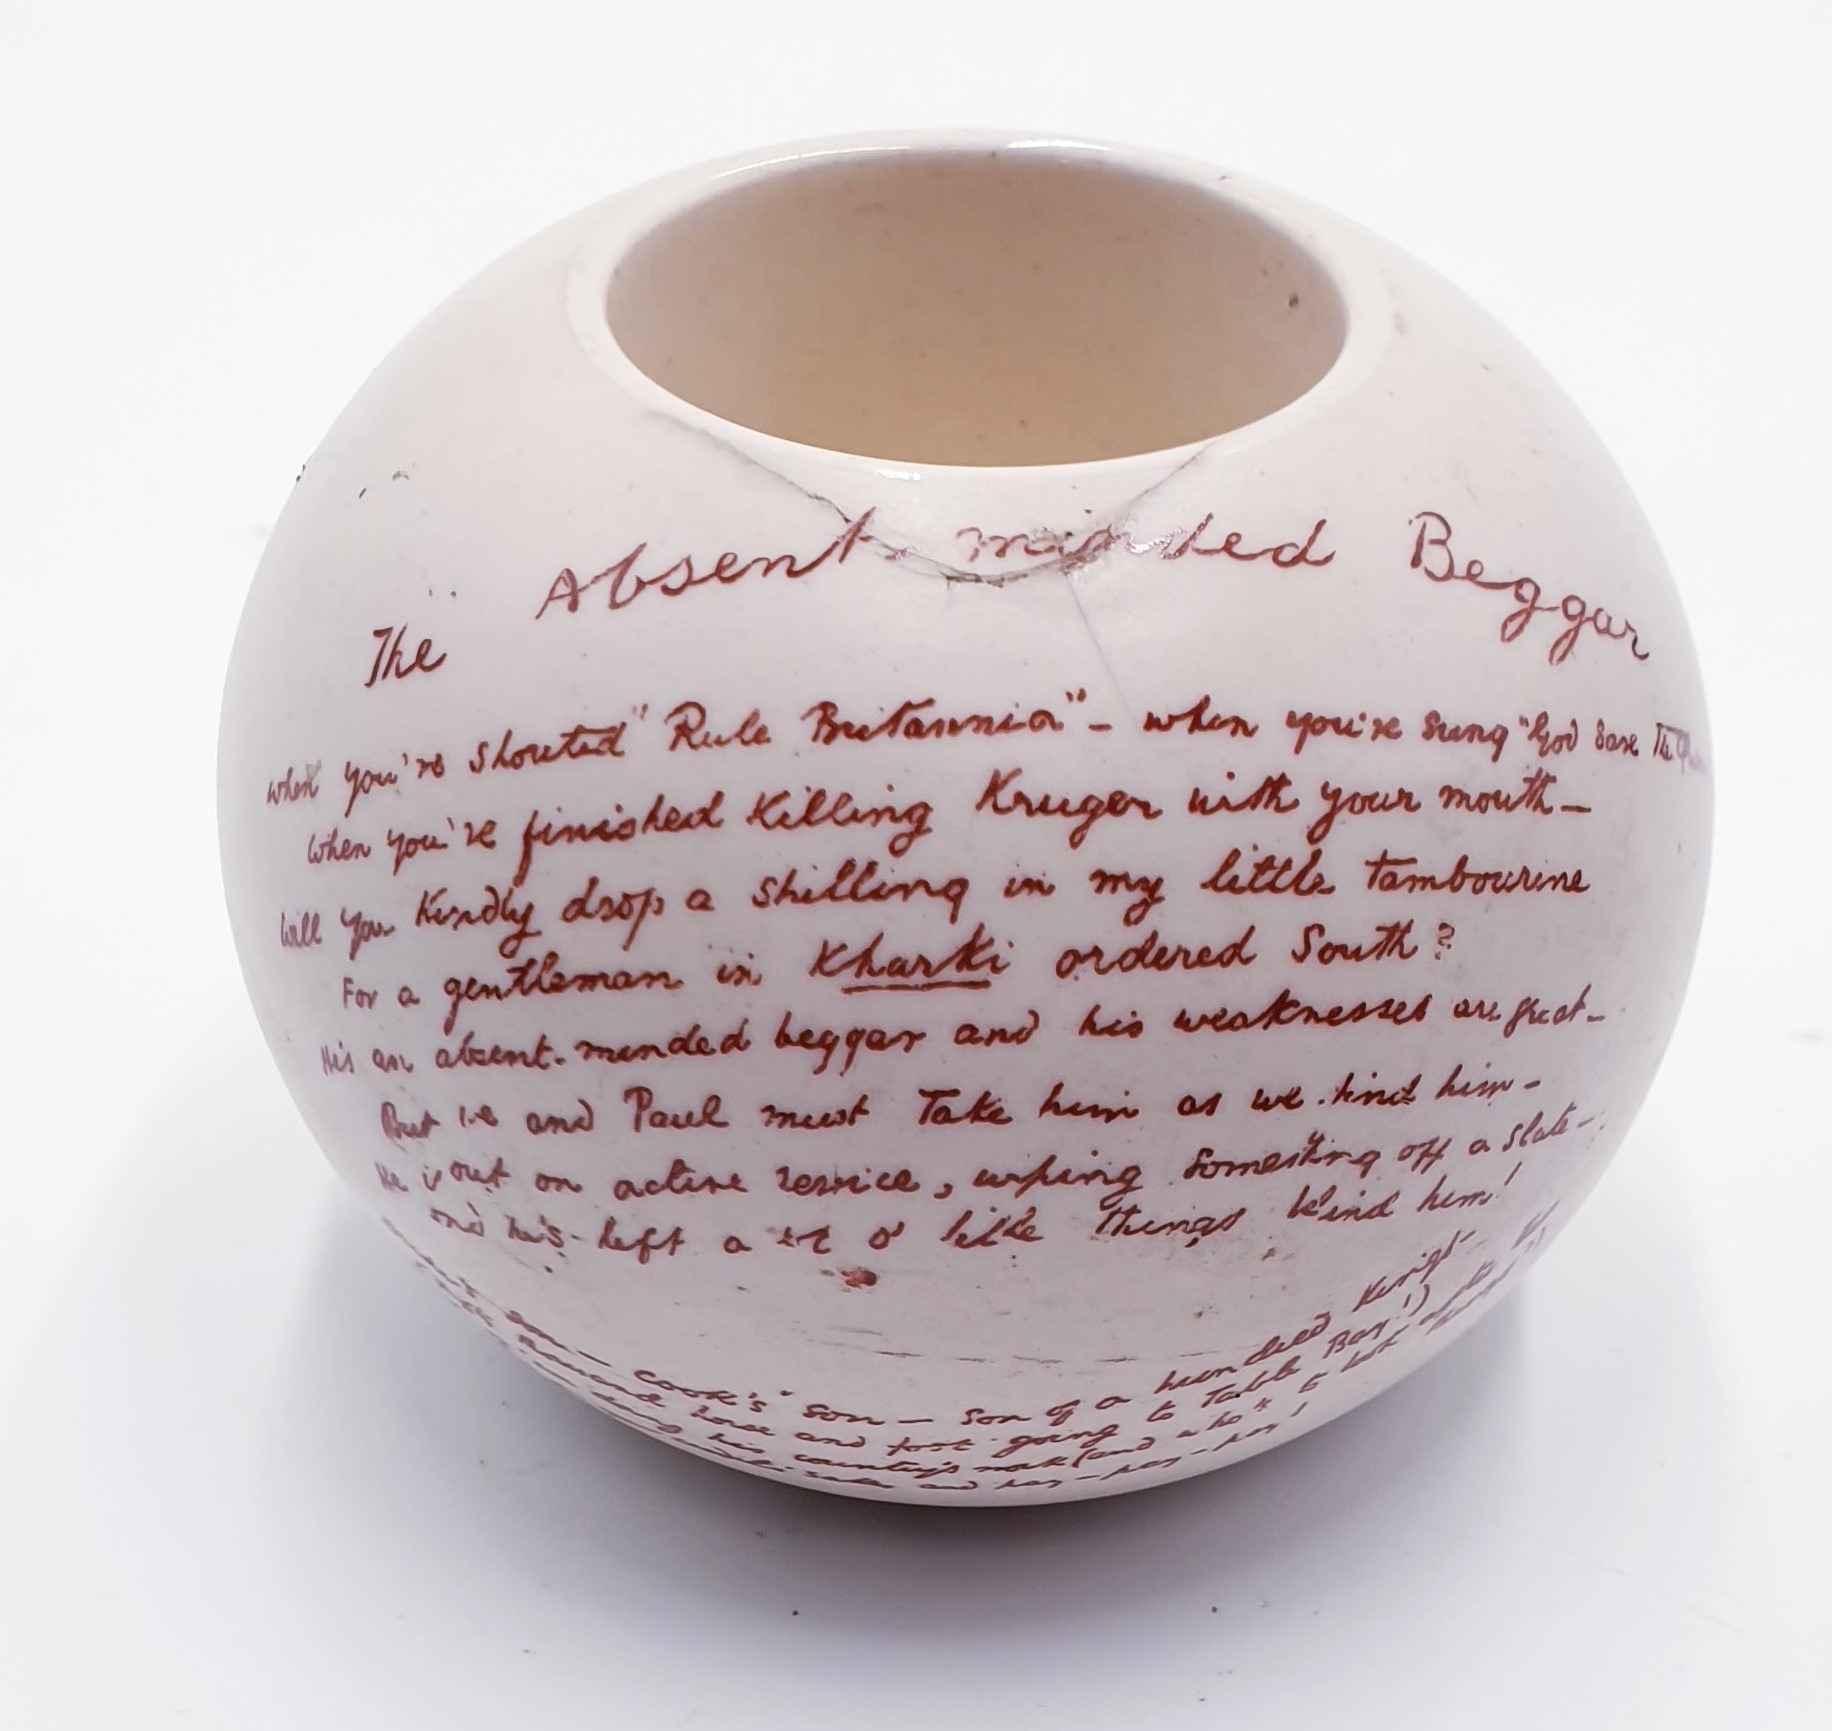 The Absent-minded Beggar
When you've shouted "Rule Britannia" – when you've sung "God Save The
When you've finished Killing Kruger with your mouth –
Will you Kindly drop a shilling in my little tambourine
For a gentleman in Kharki ordered South?
He's an absent-minded beggar and his weaknesses are great –
But we and Paul must Take him as we find him –
He is out on active service, wiping something off a slate –
and he's left a lot o' little things behind him!
son – Cook's son – Son of a hundred Kings –
horse and foot going to Table Bay!)
his country's work (and who's to look
and pay – pay – pay!